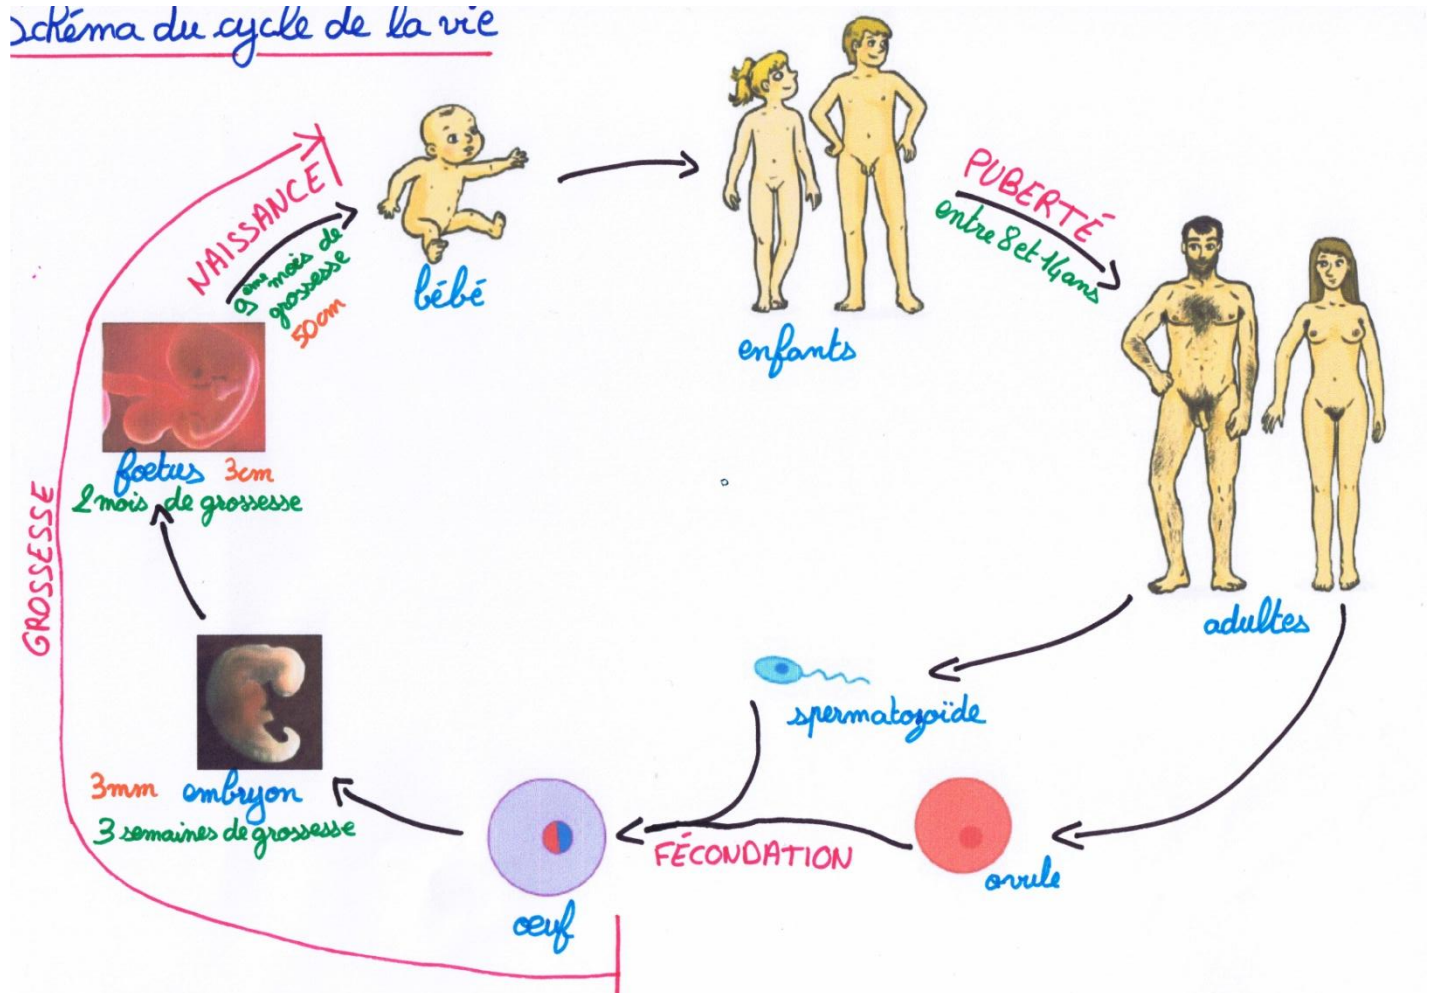 Schéma du cycle de la vie
NAISSANCE
9ème mois de
grossesse
50cm
bébé
enfants
PUBERTÉ
entre 8 et 14 ans
adultes
spermatozoïde
ovule
FÉCONDATION
œuf
3mm embryon
3 semaines de grossesse
foetus 3cm
2 mois de grossesse
GROSSESSE